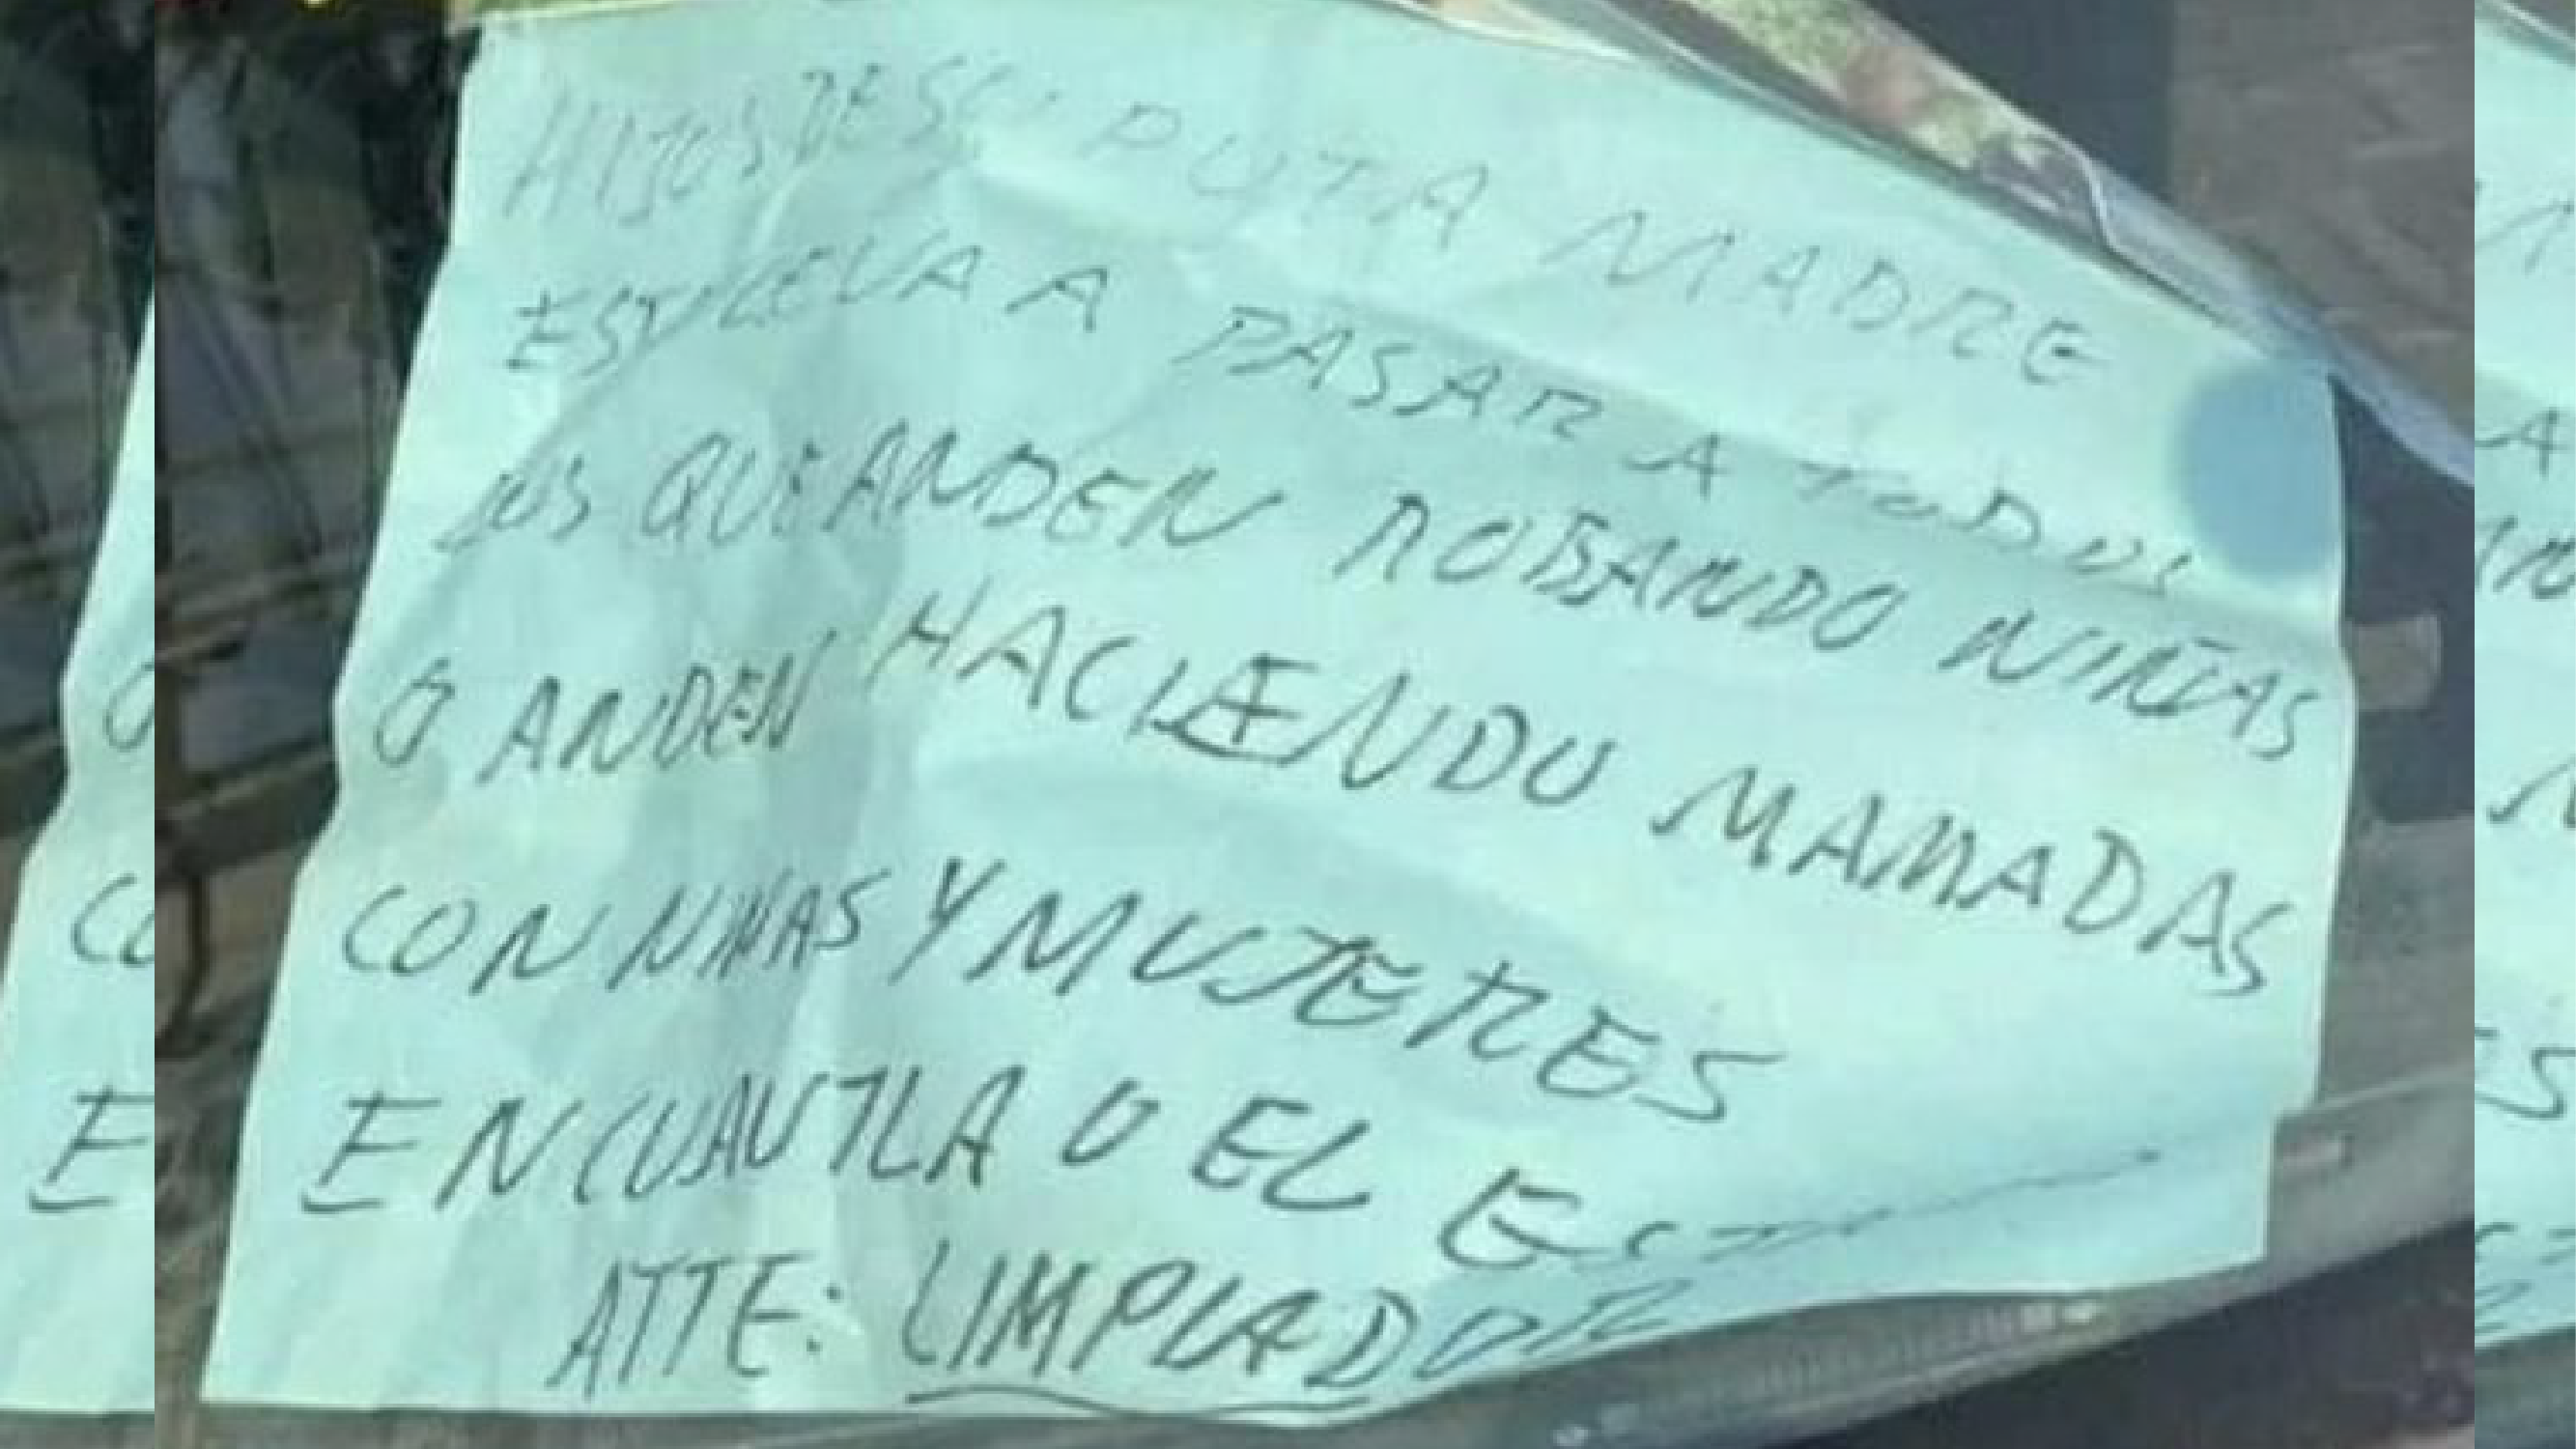 HIJOS DE SU PUTA MADRE
ESTO LEVA A PASAR A TODOS
LOS QUE ANDEN ROBANDO NIÑAS
O ANDEN HACIENDO MAMADAS
CON NIÑAS Y MUJERES
EN CUAUTLA O EL
ATTE: LIMPIADOR